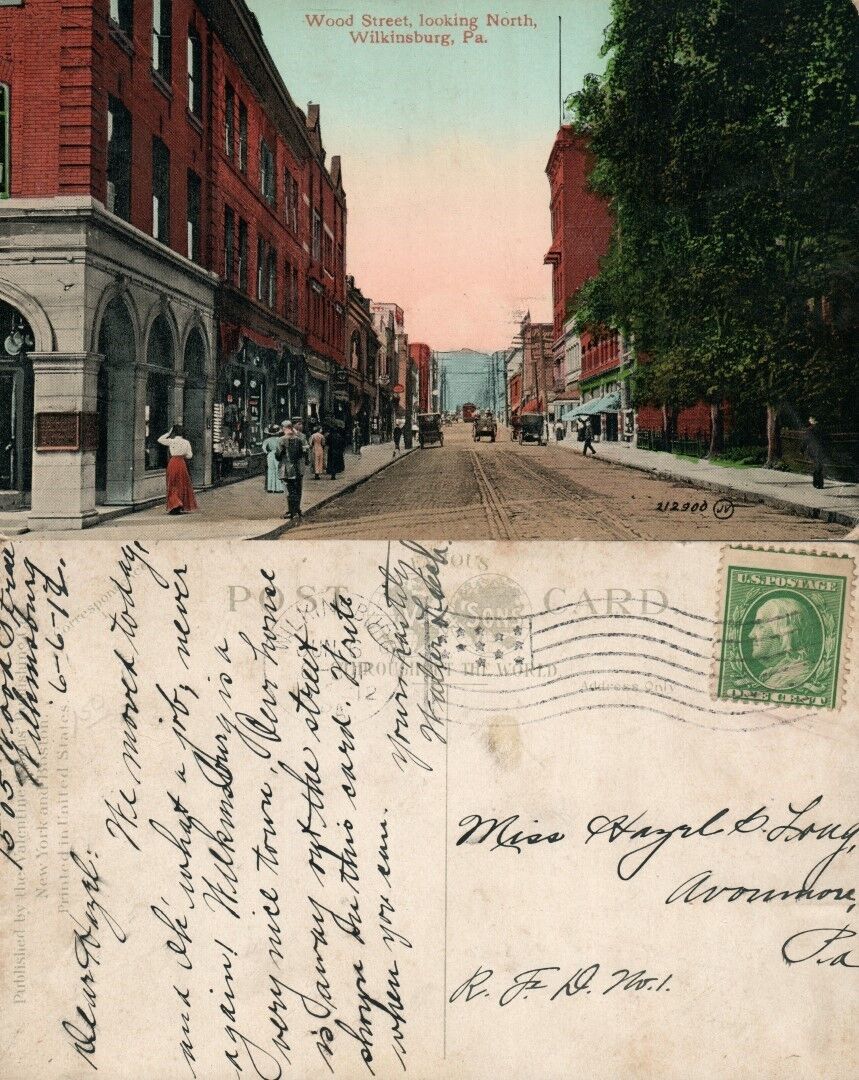 Wood Street, looking North,
Wilkinsburg, Pa.
212900 JV
1505 Wood Street
Wilkinsburg
6-6-12.
Dear Hazel:
We moved today,
and Oh, what a job, never
again! Wilkinsburg is a
very nice town. Our house
is away out the street
shown on this card. Write
when you can.
Yours
Walter
POST CARD
FAMOUS
SONS
THROUGHOUT THE WORLD
Address Only
Correspondence
Published by the Valentine
New York and Boston.
Printed in United States
12
U.S. POSTAGE
ONE CENT
Miss Hazel D. Long,
Avonmore,
Pa
R. F. D. No. 1.